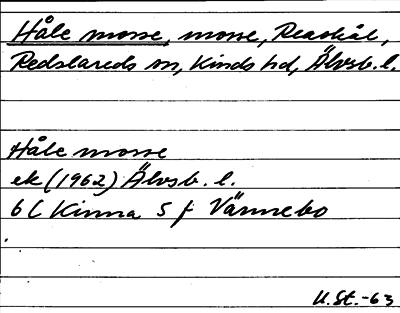 Håle mosse, mosse, Reaskäl,
Redslareds sn, Kinds hd, Älvsb. l.
Håle mosse
ek (1962) Älvsb. l.
6 C Kinna 5 f Vännebo
U. St. -63